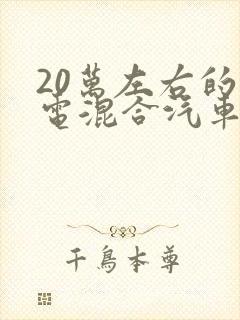 20萬左右的
電混合汽車
千鳥本尊